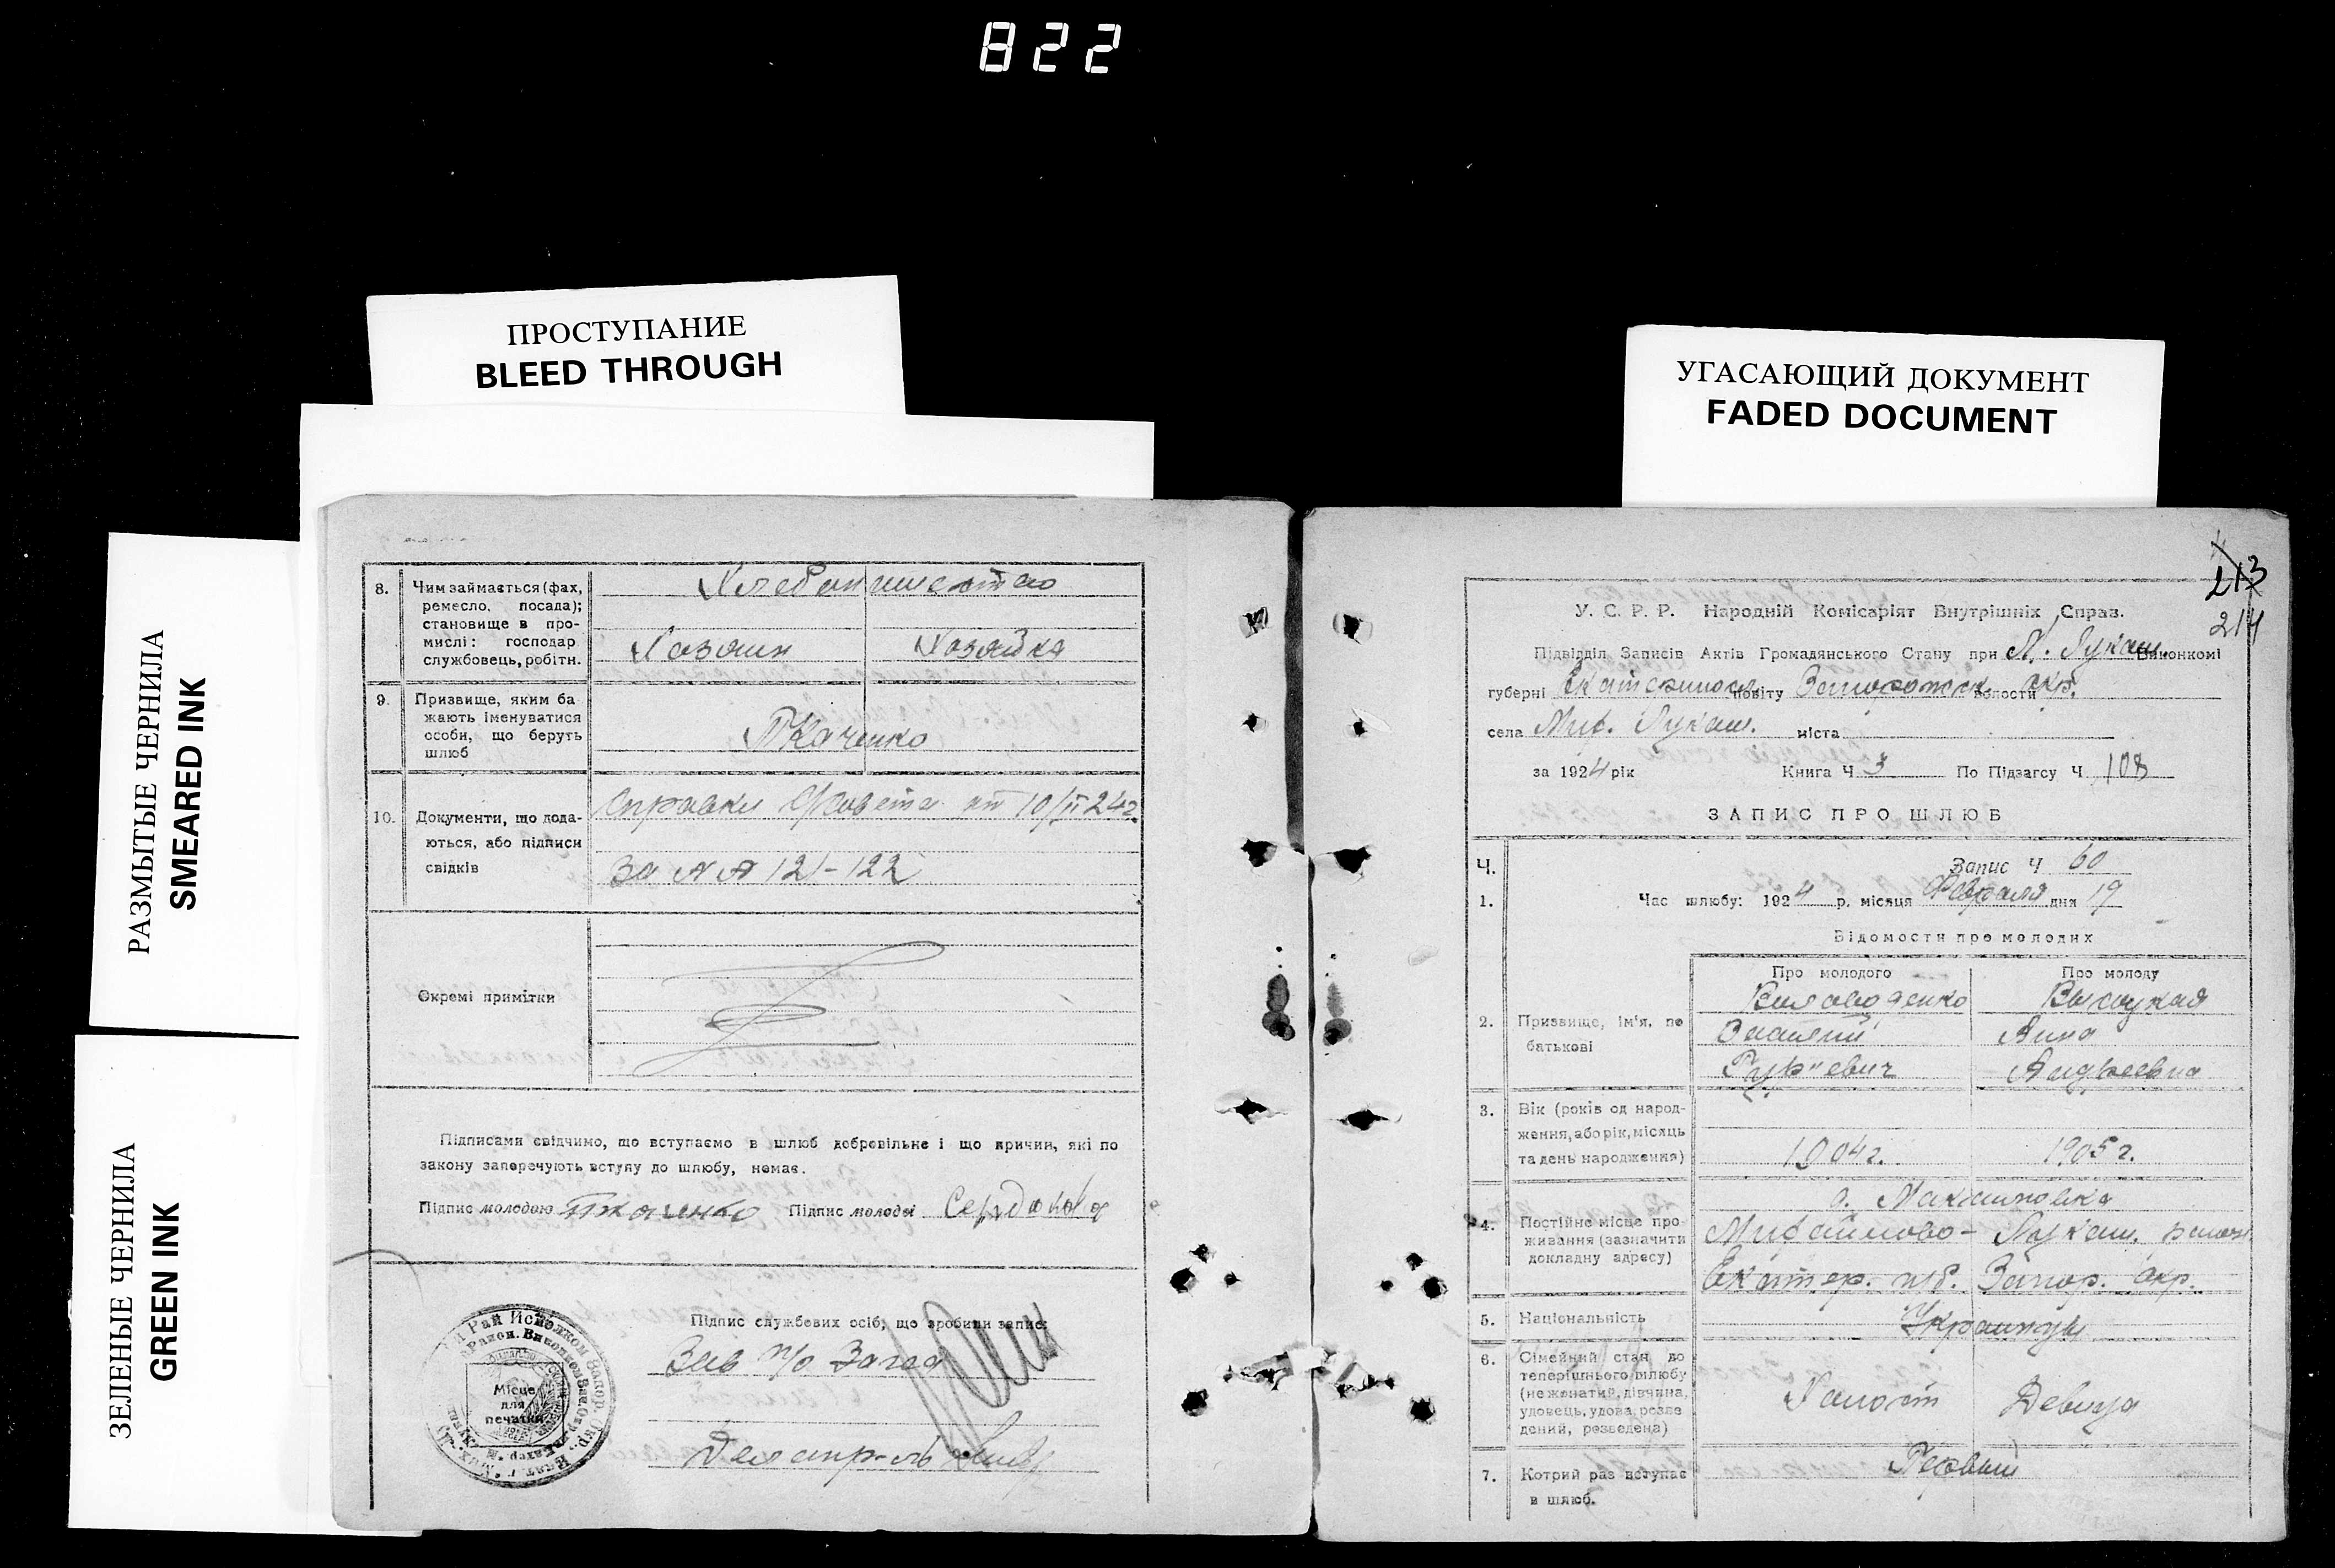 822
ПРОСТУПАНИЕ
BLEED THROUGH
УГАСАЮЩИЙ ДОКУМЕНТ
FADED DOCUMENT
РАЗМЫТЫЕ ЧЕРНИЛА
SMEARED INK
ЗЕЛЕНЫЕ ЧЕРНИЛА
GREEN INK
8. Чим займається (фах,
ремесло, посада);
становище в про-
мислі: господар
службовець, робітн.
Хлебопашество
Хозяин Хозяйка
9. Призвище, яким ба
жають іменуватися
особи, що беруть
шлюб
Ткаченко
10. Документи, що дода-
ються, або підписи
свідків
Справки от 10/II 24 г.
за 121-122
Окремі примітки
Підписами свідчимо, що вступаємо в шлюб добровільне і що причин, які по
закону заперечують вступу до шлюбу, немає.
Підпис молодою Ткаченко Підпис молодеі
Підпис службових осіб, що зробили запис:
Зав п/о Загса
Місце
для
печатки
213
214
У. С. Р. Р. Народній Комісаріят Внутрішніх Справ.
Підвідділ Записів Актів Громадянського Стану при М. Лукаш. Виконкомі
губерні Екатеринос. повіту Запорожск. волости окр.
села Мих. Лукаш. міста
за 1924 рік Книга Ч 3 По Підзагсу Ч 108
ЗАПИС ПРО ШЛЮБ
Ч. Запис Ч 60
1. Час шлюбу: 1924 р. місяця Февраля дня 19
Відомости про молодих
Про молодого Про молоду
2. Призвище, ім'я, по
батькові
Высоцкая
Василий Анна
Андреевна
3. Вік (років од народ-
ження, або рік, місяць
та день народження)
1904 г. 1905 г.
4. Постійне місце про-
живання (зазначити
докладну адресу)
Михайлово- Лукаш. район
Екатер. губ. Запор. окр.
5. Національність
Украинцы
6. Сімейний стан до
теперішнього шлюбу
(не жонатий, дівчина,
удовець, удова, розве
дений, розведена)
Холост Девица
7. Котрий раз вступає
в шлюб.
Первый